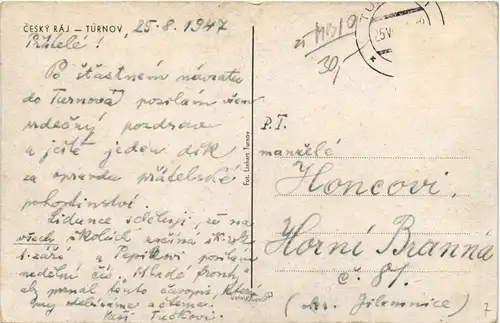 ČESKÝ RÁJ — TURNOV
25.8.1947
Přátelé!
Po šťastném návratu
do Turnova posílám všem
srdečný pozdrav
a ještě jeden dík
za opravdu přátelské
pohostinství.
Lidunce sděluji, že na
všech školách začíná šk. rok
1. září a Pepíkovi posílám
nedělní čís. "Mladé fronty"
aby poznal tento časopis, který
my odebíráme a čteme.
Vaši Tučkovi.
Fot. Linhart Turnov
P.T.
manželé
Honcovi.
Horní Branná
č. 81.
(okr. Jilemnice)
7